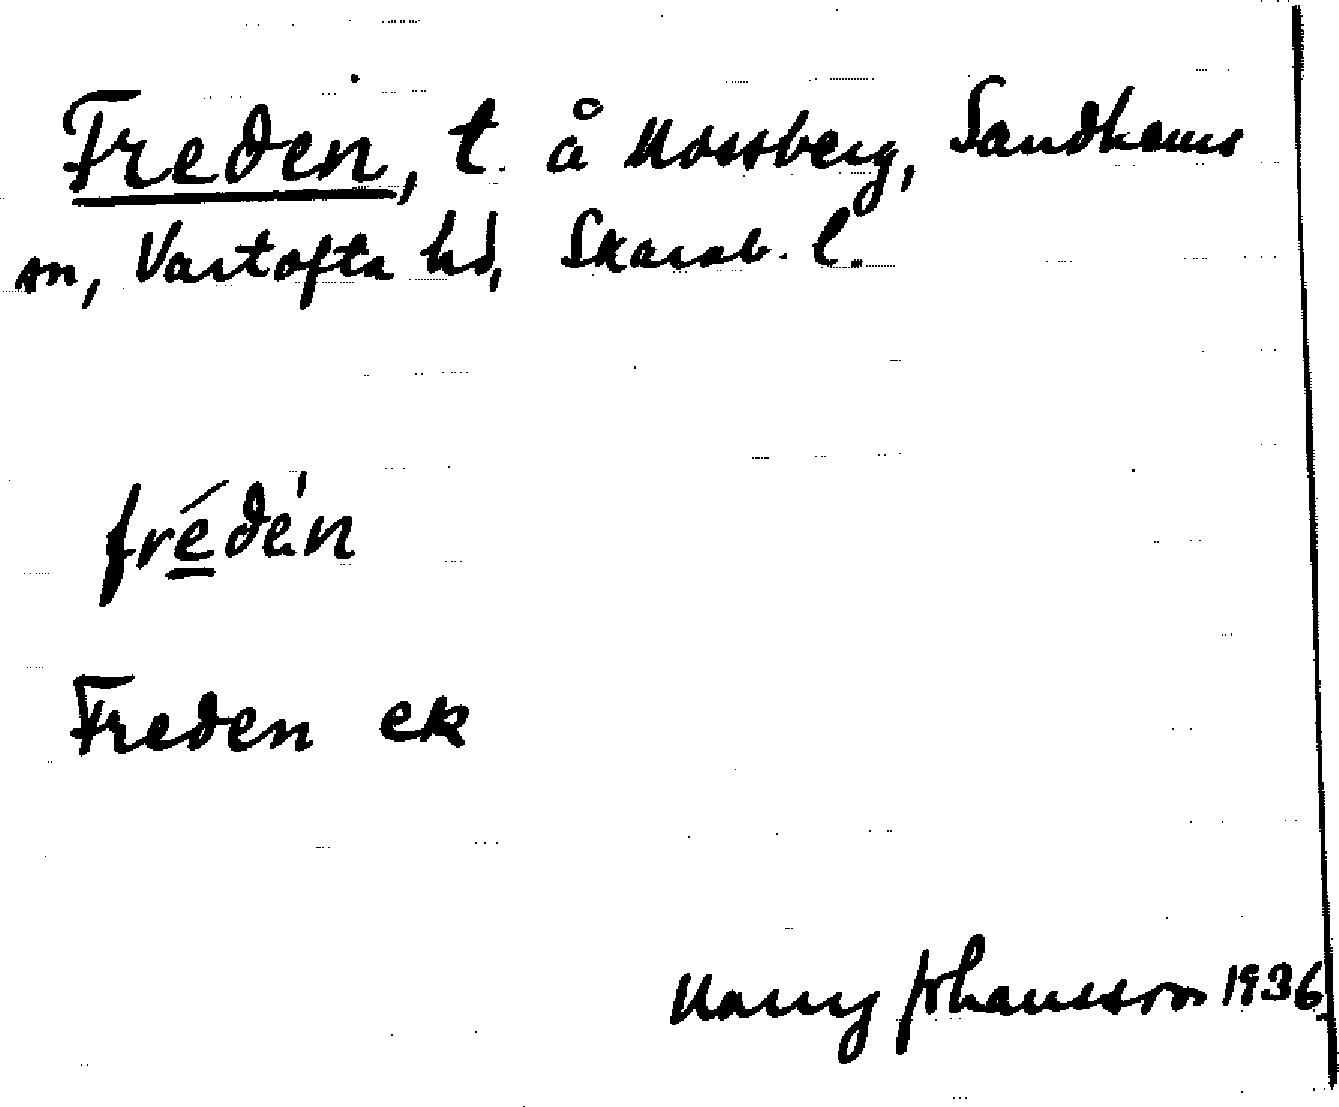 Freden, t. å Mossberg, Sandhems
sn, Vartofta hd, Skarab. l.
frédén
Freden ek
Harry Johansson 1936